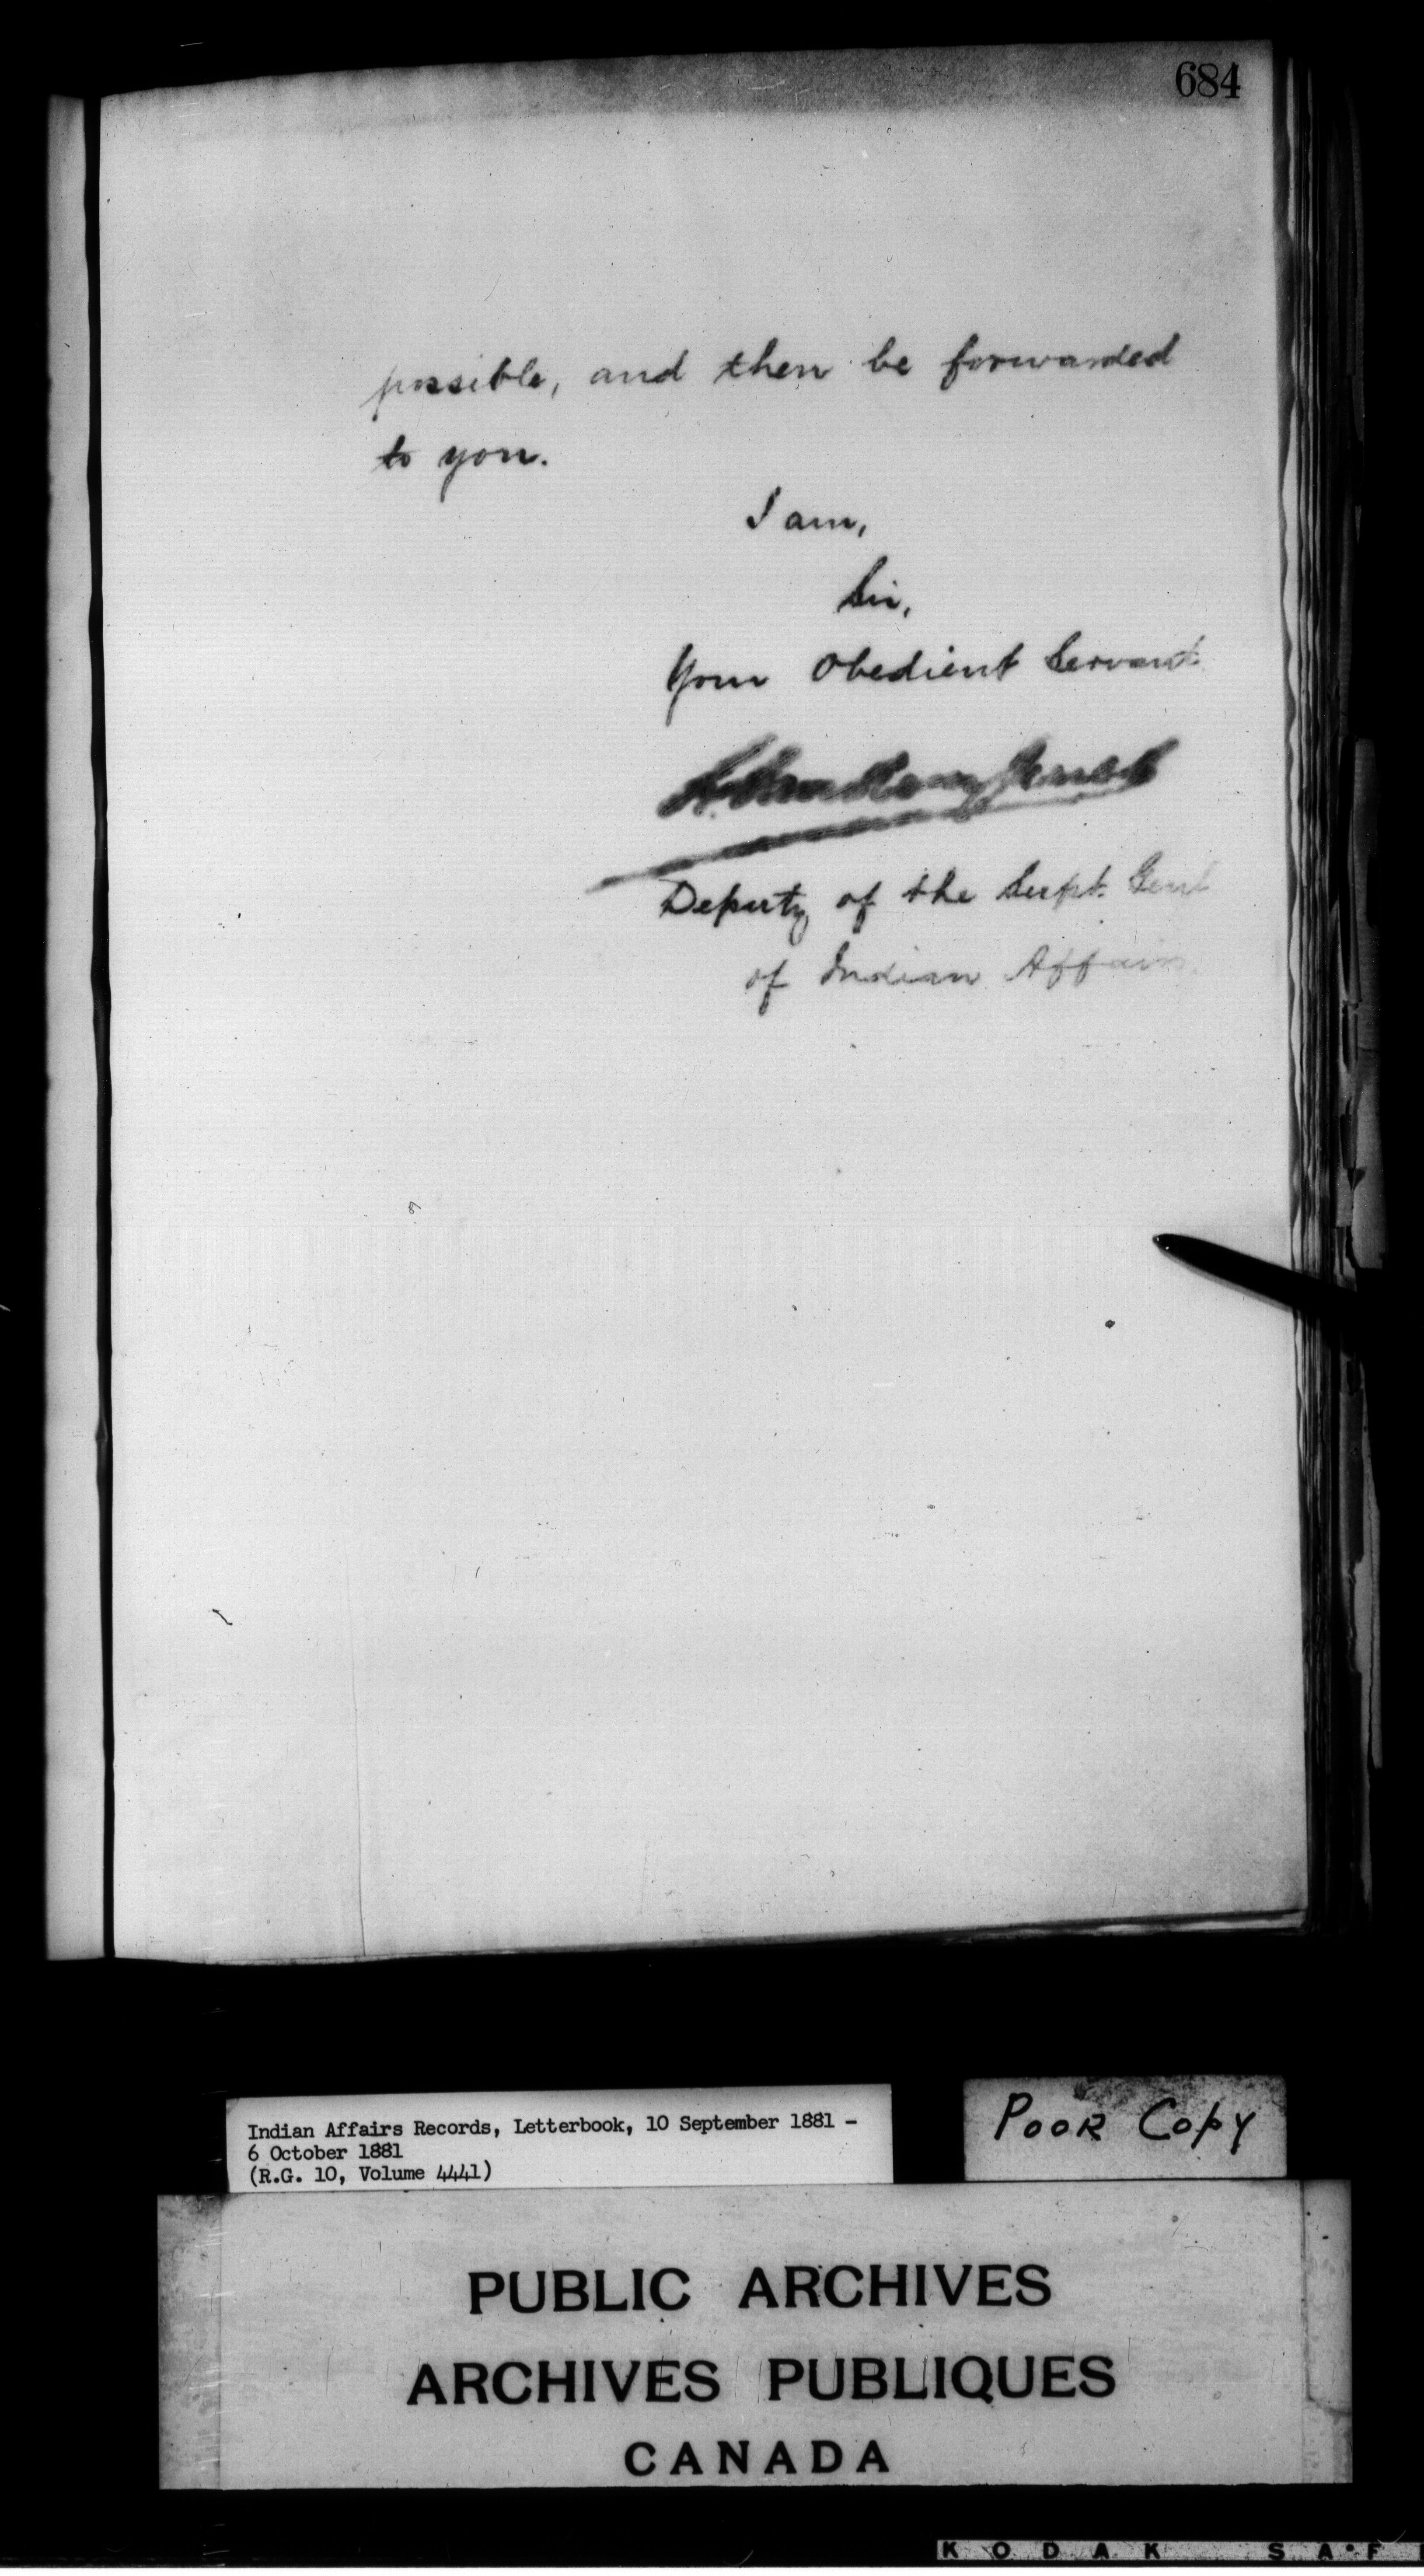 684
possible, and then be forwarded
to you.
I am,
Sir,
Your Obedient Servant
L. Vankoughnet
Deputy of the Supt. Genl
of Indian Affairs.
Indian Affairs Records, Letterbook, 10 September 1881 -
6 October 1881
(R.G. 10, Volume 4441)
POOR COPY
PUBLIC ARCHIVES
ARCHIVES PUBLIQUES
CANADA
KODAK SAF